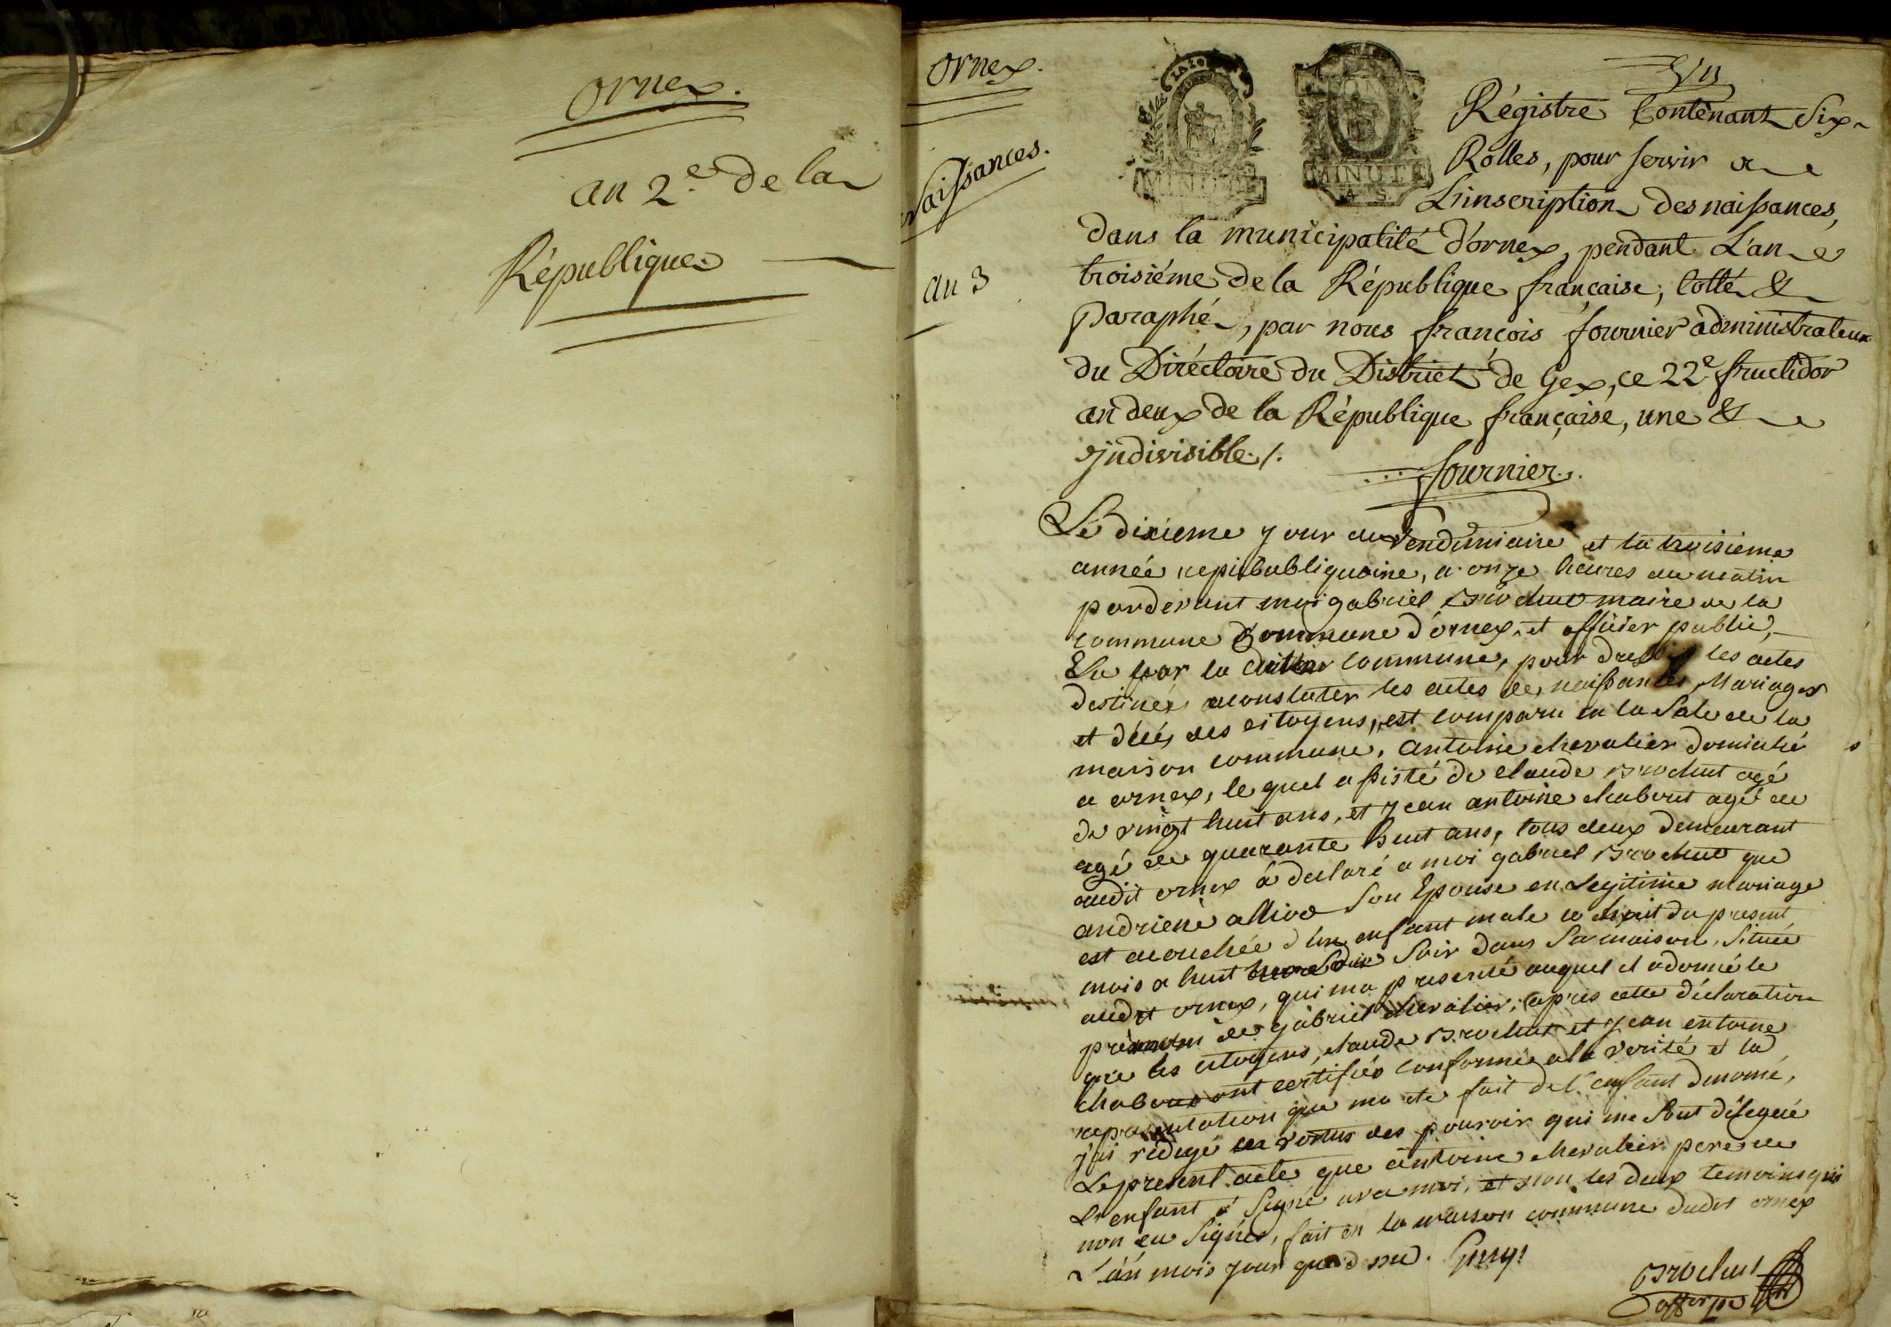 Ornex.
an 2.e de la
République
Ornex.
Naissances.
an 3
MINUTE
MINUTE
Régistre Contenant Six
Rolles, pour servir a
L'inscription des naissances,
dans la municipalité d'ornex, pendant L'an
troisiéme de la République française, Cotté &
Paraphé, par nous françois fournier administrateur
du Diréctoire du District de Gex, ce 22e fructidor
an deux de la République française, une &
indivisible ./.
fournier.
Le dixieme jour de Vendimiaire et la troisieme
année repububliquaine, a onze heures du matin
pardevant moi gabriel Brochut maire de la
commune Commune d'ornex, et officier public,
Elu par la commune, pour dresser les actes
destinés a constater les actes de naissances, Mariages
et décés des citoyens, est comparu en la Sale de la
maison commune, antoine chevalier domicilié
a ornex, lequel assisté de claude Brochut agé
de vingt huit ans, et jean antoine chabout agé de
agé de quarante huit ans, tous deux demeurant
audit ornex a declaré a moi gabriel Brochut que
andriene Son Epouse en Legitime mariage
est acouchée d'un enfant male le du present
mois a huit heure du Soir dans Sa maison, Située
audit ornex, qui ma presenté auquel il a donné le
prénom de gabriel chevalier, apres cette déclaration
que les citoyens, claude Brochut et jean entoine
chabout ont certifiés conforme a la verité et la
representation que ma ete fait de l'enfant denomé,
j'ai rédigé en vertus des pouvoir qui me Sont délegué
Le present acte que antoine chevalier pere de
L'enfant a Signé avec moi, et non les deux temoins qui
non eu Signés, fait en la maison commune dudit ornex
L'an mois jour que d
Brochut